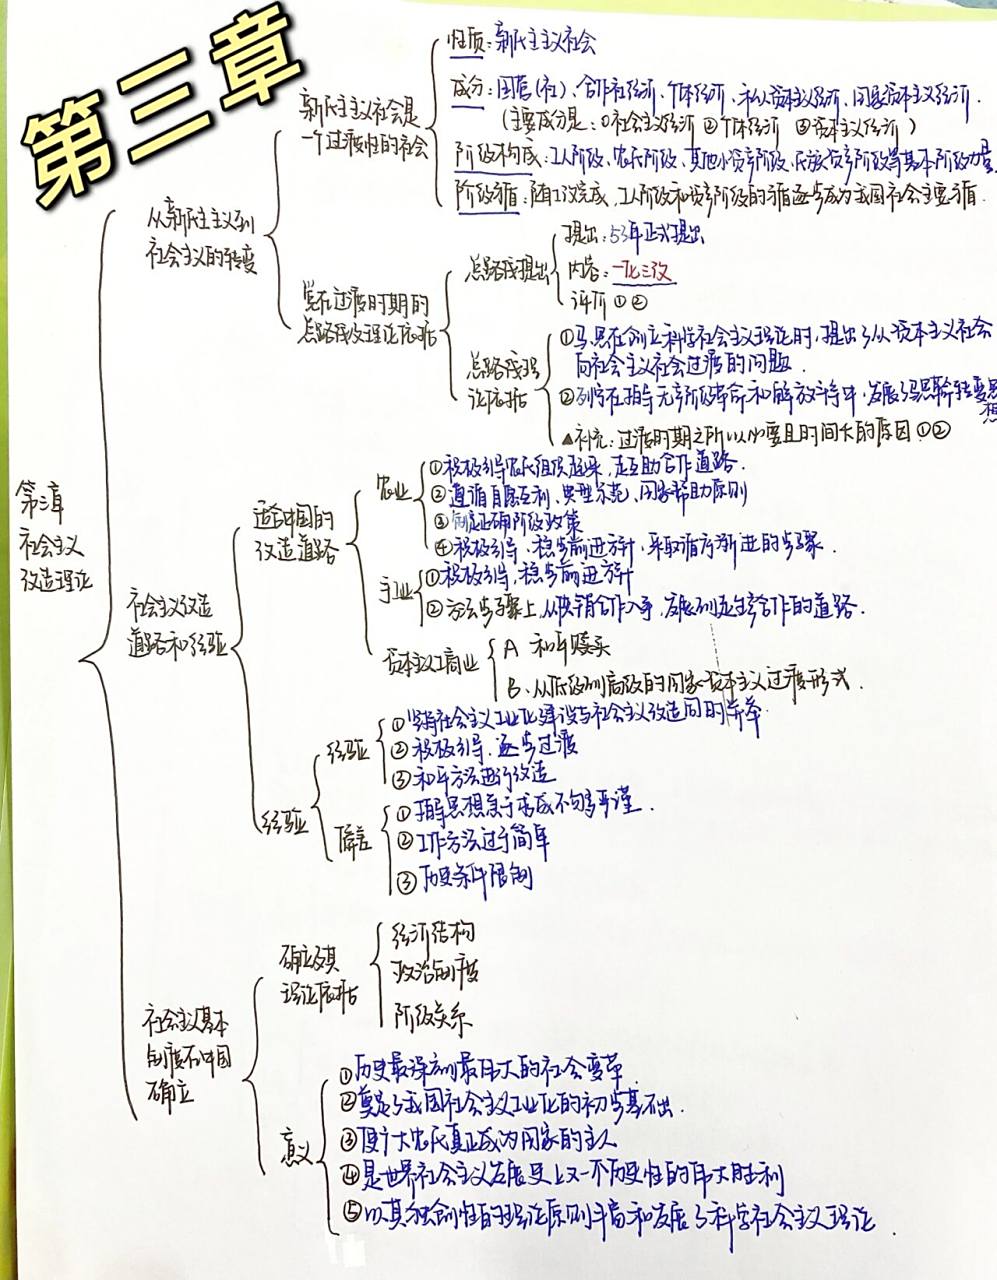 第三章
性质：新民主主义社会
成分：国营(社)、合作社经济、个体经济、私人资本主义经济、国家资本主义经济.
新民主主义社会是
一个过渡性的社会
(主要成分是：①社会主义经济 ②个体经济 ③资本主义经济)
阶级构成：工人阶级、农民阶级、其他小资产阶级、民族资产阶级等基本阶级力量
阶级矛盾：随土改完成,工人阶级和资产阶级的矛盾逐步成为我国社会主要矛盾.
从新民主主义到
社会主义的转变
提出：53年正式提出
总路线提出
内容：一化三改
评价①②
党在过渡时期的
总路线及理论依据
①马、恩在创立科学社会主义理论时,提出了从资本主义社会
向社会主义社会过渡的问题.
总路线理
论依据
②列宁在指导无产阶级革命和解放斗争中,发展了马恩革命转变思
想
▲补充：过渡时期之所以必要且时间长的原因①②
第三章
社会主义
改造理论
农业
①积极引导农民组织起来,走互助合作道路.
②遵循自愿互利、典型示范、国家帮助原则
③制定正确阶级政策
④积极引导、稳步前进方针,采取循序渐进的步骤.
适合中国的
改造道路
手工业
①积极引导,稳步前进方针
②方法步骤上,从供销合作入手,发展到走生产合作的道路.
社会主义改造
道路和经验
资本主义工商业
A 和平赎买
B.从低级到高级的国家资本主义过渡形式.
经验
①坚持社会主义工业化建设与社会主义改造同时并举.
②积极引导.逐步过渡
③和平方法进行改造
经验
①指导思想急于求成不够严谨.
②工作方法过于简单
③历史条件限制
确立及其
理论依据
经济结构
政治制度
阶级关系
社会主义基本
制度在中国
确立
意义
①历史最深刻最伟大的社会变革.
②奠定了我国社会主义工业化的初步基础.
③使广大农民真正成为国家的主人
④是世界社会主义发展史上又一个历史性的伟大胜利
⑤以其独创性的理论原则丰富和发展了科学社会主义理论.